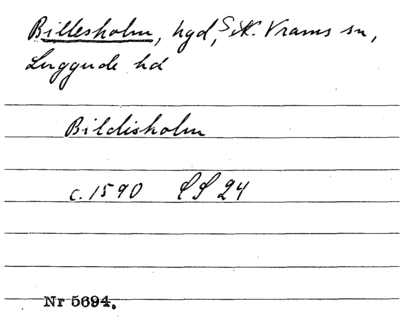 Billesholm, hgd, S. K. Vrams sn,
Luggude hd
Bildisholm
c. 1590 LS 24
Nr 5694.